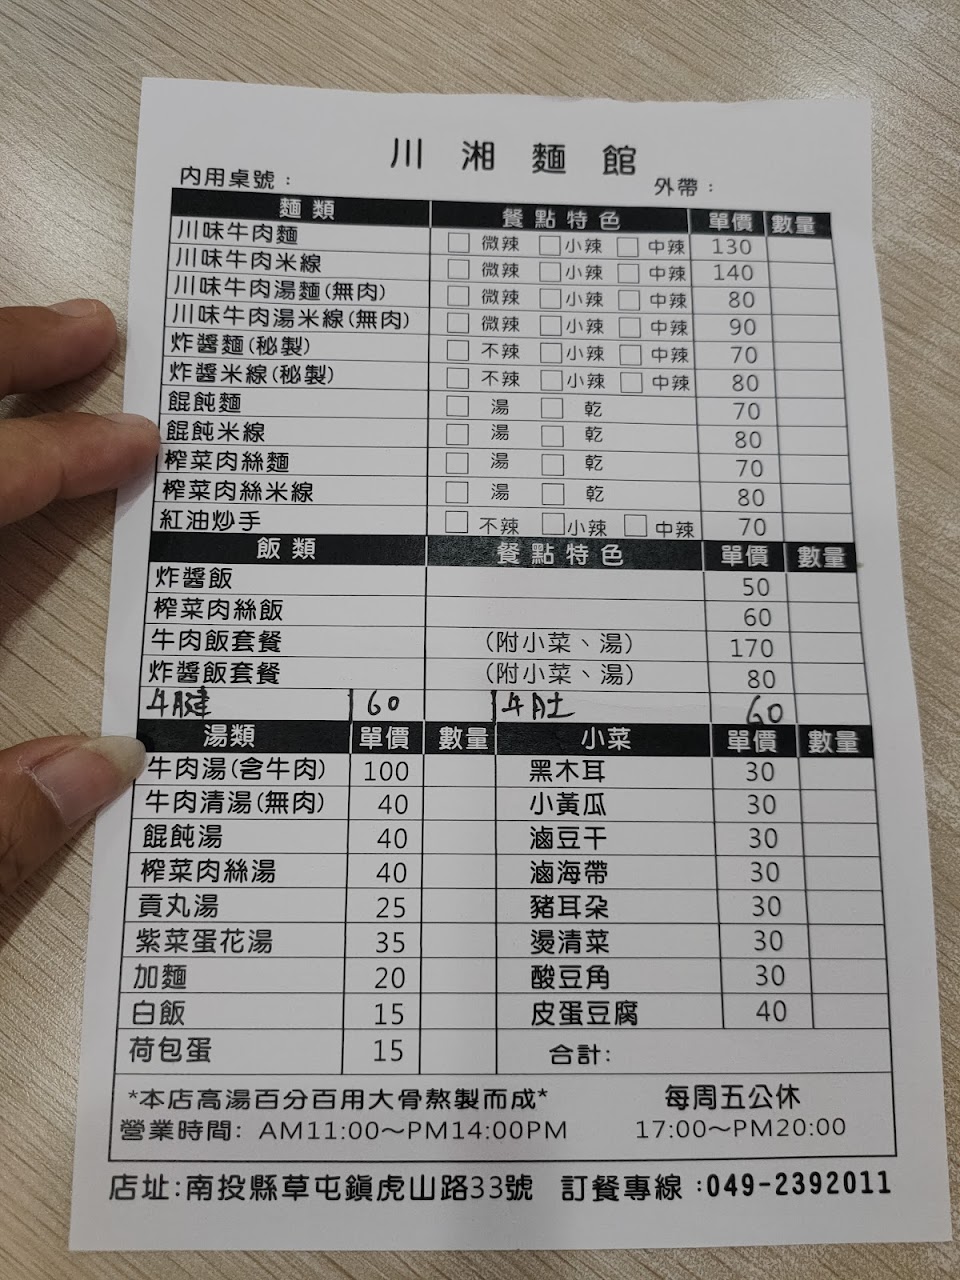 川湘麵館
內用桌號： 外帶：
麵類 餐點特色 單價 數量
川味牛肉麵 □ 微辣 □ 小辣 □ 中辣 130
川味牛肉米線 □ 微辣 □ 小辣 □ 中辣 140
川味牛肉湯麵(無肉) □ 微辣 □ 小辣 □ 中辣 80
川味牛肉湯米線(無肉) □ 微辣 □ 小辣 □ 中辣 90
炸醬麵(秘製) □ 不辣 □ 小辣 □ 中辣 70
炸醬米線(秘製) □ 不辣 □ 小辣 □ 中辣 80
餛飩麵 □ 湯 □ 乾 70
餛飩米線 □ 湯 □ 乾 80
榨菜肉絲麵 □ 湯 □ 乾 70
榨菜肉絲米線 □ 湯 □ 乾 80
紅油炒手 □ 不辣 □ 小辣 □ 中辣 70
飯類 餐點特色 單價 數量
炸醬飯 50
榨菜肉絲飯 60
牛肉飯套餐 (附小菜、湯) 170
炸醬飯套餐 (附小菜、湯) 80
牛腱 160 牛肚 60
湯類 單價 數量 小菜 單價 數量
牛肉湯(含牛肉) 100 黑木耳 30
牛肉清湯(無肉) 40 小黃瓜 30
餛飩湯 40 滷豆干 30
榨菜肉絲湯 40 滷海帶 30
貢丸湯 25 豬耳朵 30
紫菜蛋花湯 35 燙清菜 30
加麵 20 酸豆角 30
白飯 15 皮蛋豆腐 40
荷包蛋 15 合計:
*本店高湯百分百用大骨熬製而成* 每周五公休
營業時間: AM11:00～PM14:00PM 17:00～PM20:00
店址:南投縣草屯鎮虎山路33號 訂餐專線:049-2392011